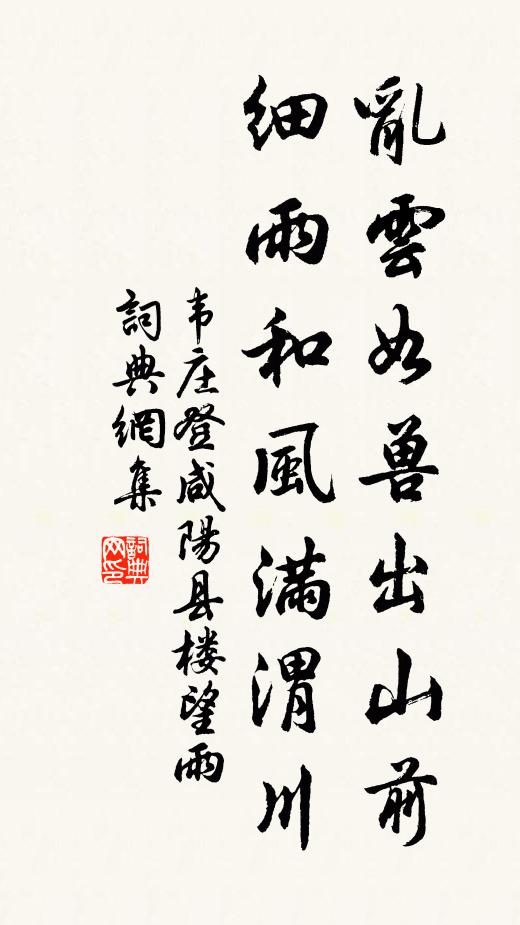 亂雲如兽出山前
細雨和風滿渭川
韦庄登咸陽县楼望雨
詞典網集
詞典网印